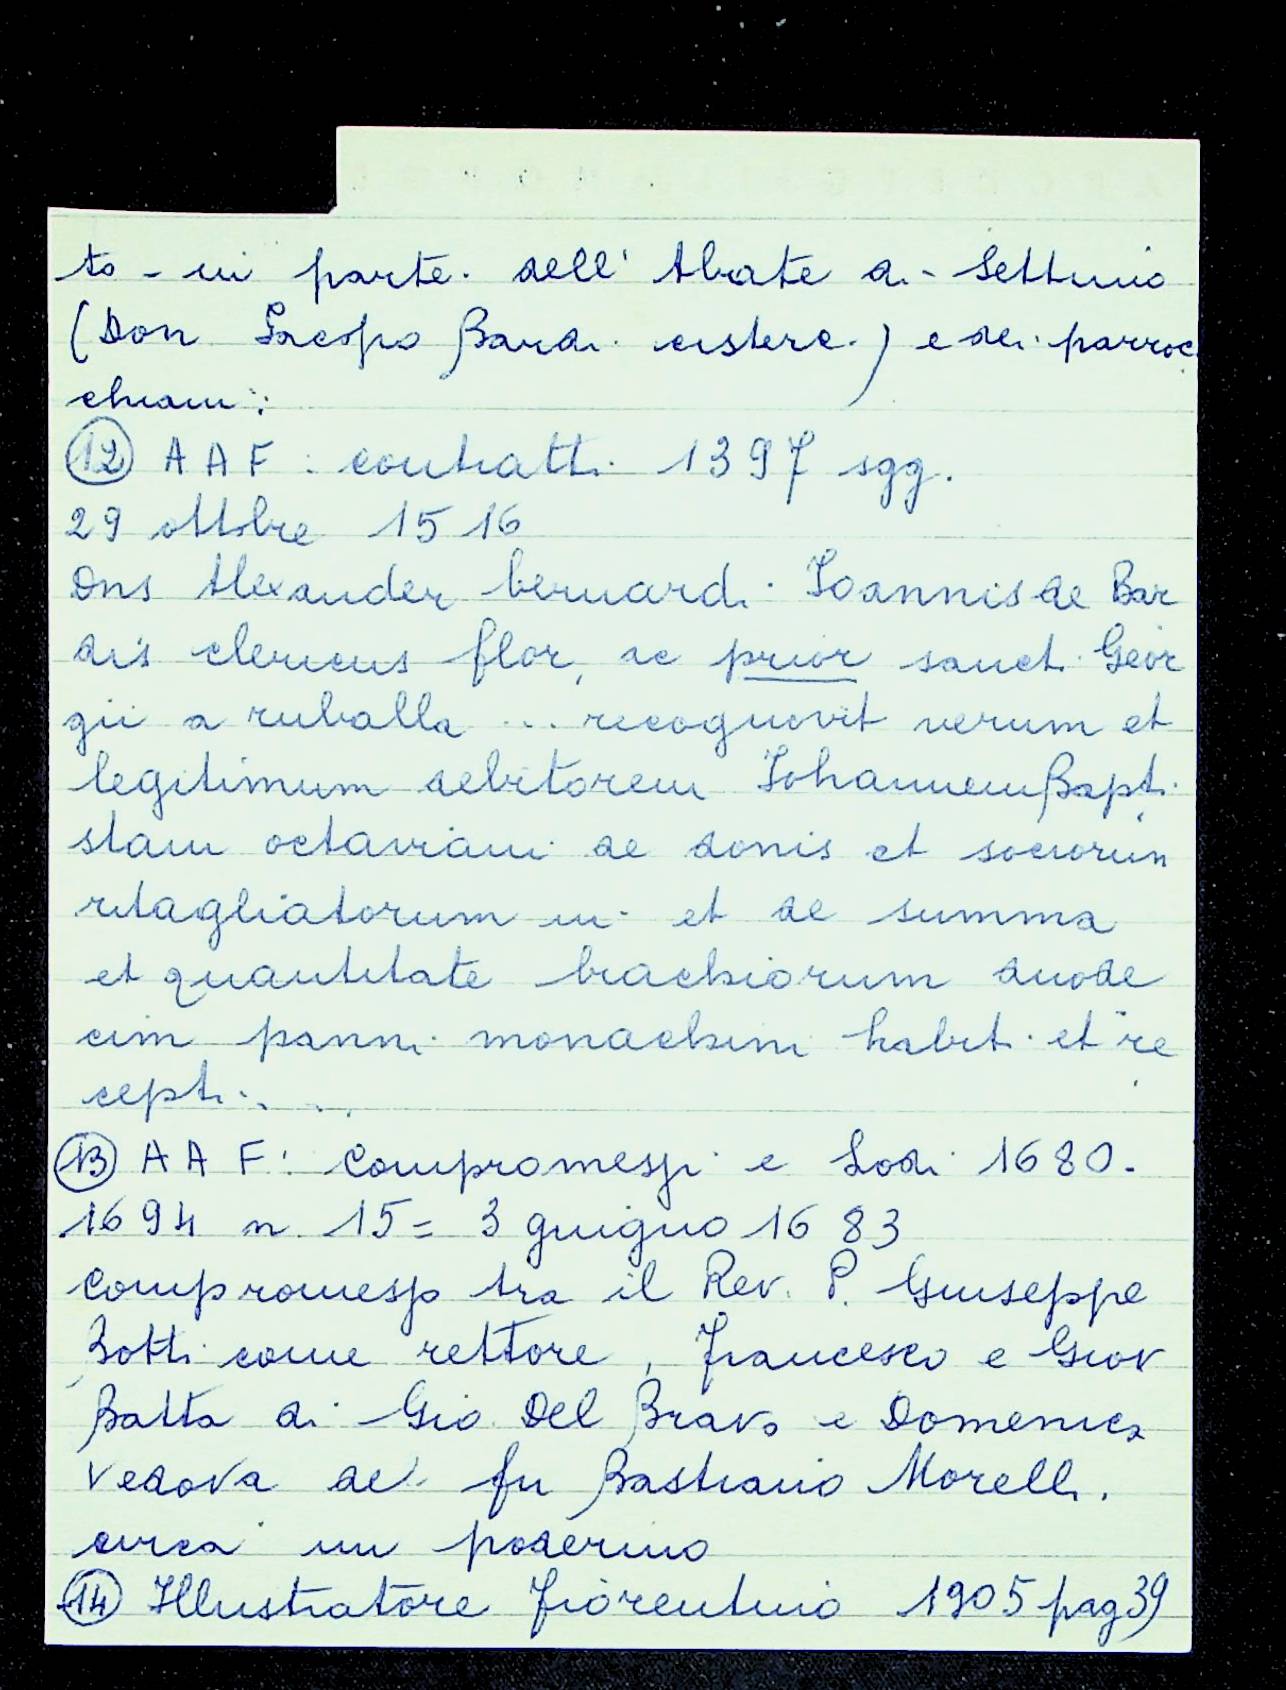 to - in parte dell' Abate di Settimo
(Don Iacopo Bardi cisterc.) e dei parroc
chiani:
(12) AAF: contratti 1397 sgg.
29 ottobre 1516
Dns Alexander bernardi Ioannis de Bar
dis clericus flor, ac prior sancti Geor
gii a ruballa ... recognovit verum et
legitimum debitorem Iohannem Bapti
stam octaviani de donis et sociorum
ritagliatorum in et de summa
et quantitate brachiorum duode
cim panni monachini habiti et re
cepti....
(13) AAF: Compromessi e Lodi 1680-
1694 n 15 = 3 giugno 1683
Compromesso tra il Rev. P. Giuseppe
Botti come rettore, Francesco e Giov
Batta di Gio Del Bravo e Domenica
vedova del fu Bastiano Morelli.
circa un poderino
(14) Illustratore Fiorentino 1905 pag 39